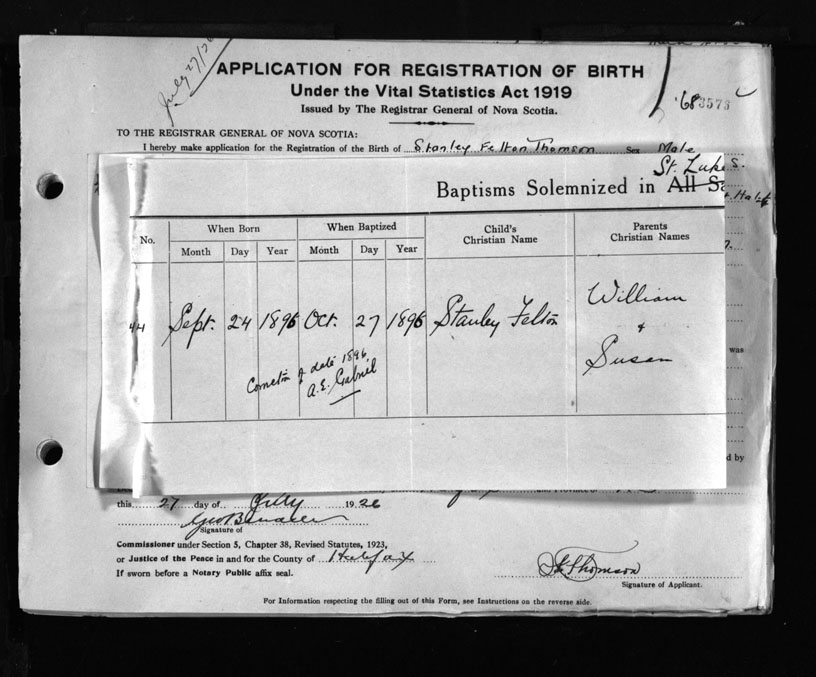 July 27/26
APPLICATION FOR REGISTRATION OF BIRTH
Under the Vital Statistics Act 1919
Issued by The Registrar General of Nova Scotia.
'68 3573
TO THE REGISTRAR GENERAL OF NOVA SCOTIA:
I hereby make application for the Registration of the Birth of Stanley Felton Thomson Sex Male
St. Lukes.
Baptisms Solemnized in All S
No. When Born When Baptized Child's Christian Name Parents Christian Names
Month Day Year Month Day Year
44 Sept. 24 1896 Oct. 27 1896 Stanley Felton William & Susan
Correction of date 1896
A.E. Gabriel
was
d by
this 27 day of July 1926
Signature of
Commissioner under Section 5, Chapter 38, Revised Statutes, 1923,
or Justice of the Peace in and for the County of Halifax
If sworn before a Notary Public affix seal.
Thomson
Signature of Applicant.
For Information respecting the filling out of this Form, see Instructions on the reverse side.